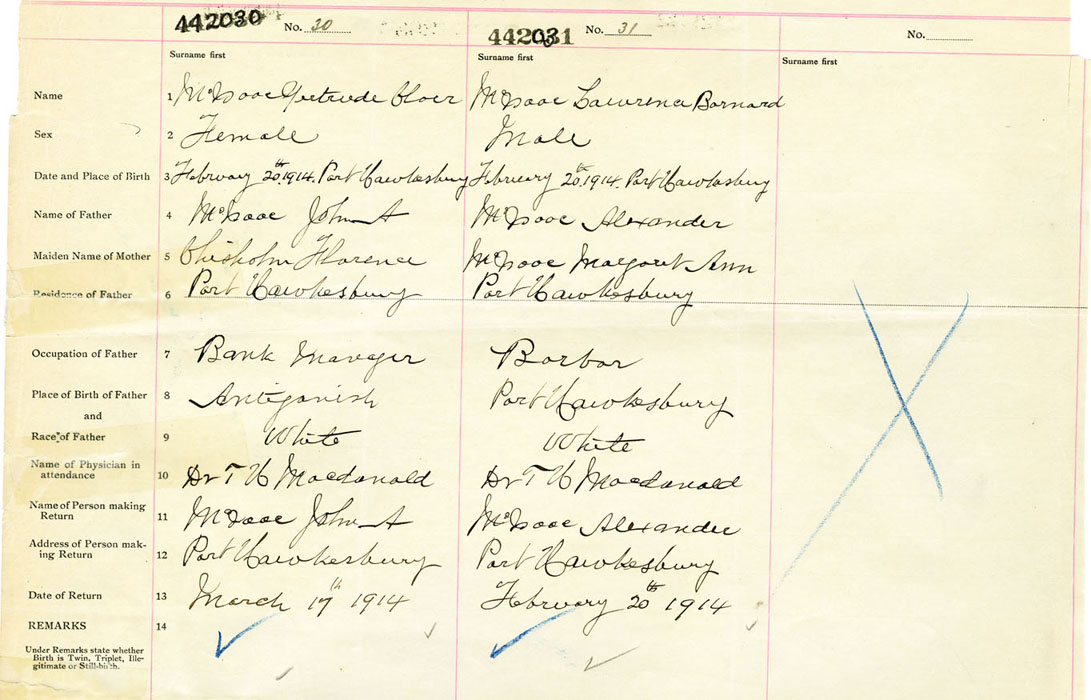 442030 No. 30 442031 No. 31 No.
Surname first Surname first Surname first
Name 1 McIsaac Gertrude McIsaac Lawrence Bernard
Sex 2 Female Male
Date and Place of Birth 3 February 20th 1914. Port Hawkesbury February 20th 1914. Port Hawkesbury
Name of Father 4 McIsaac John A McIsaac Alexander
Maiden Name of Mother 5 Chisholm Florence McIsaac Margaret Ann
Residence of Father 6 Port Hawkesbury Port Hawkesbury
Occupation of Father 7 Bank Manager Barber
Place of Birth of Father 8 Antigonish Port Hawkesbury
and
Race of Father 9 White White
Name of Physician in
attendance 10 Dr T H Macdonald Dr T H Macdonald
Name of Person making
Return 11 McIsaac John A McIsaac Alexander
Address of Person mak-
ing Return 12 Port Hawkesbury Port Hawkesbury
Date of Return 13 March 17th 1914 February 20th 1914
REMARKS 14
Under Remarks state whether
Birth is Twin, Triplet, Ille-
gitimate or Still-birth.